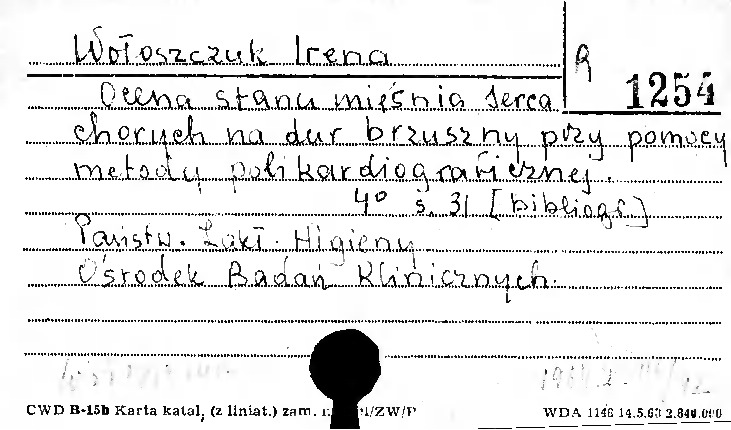 Wołoszczuk Irena
R
1254
Ocena stanu mięśnia serca
chorych na dur brzuszny przy pomocy
metody polikardiograficznej.
4° s. 31 [bibliogr.]
Państw. Zakł. Higieny.
Ośrodek Badań Klinicznych.
CWD B-15b Karta katal, (z liniat.) zam. /ZW/P
WDA 1146 14.5.63 2.840.000